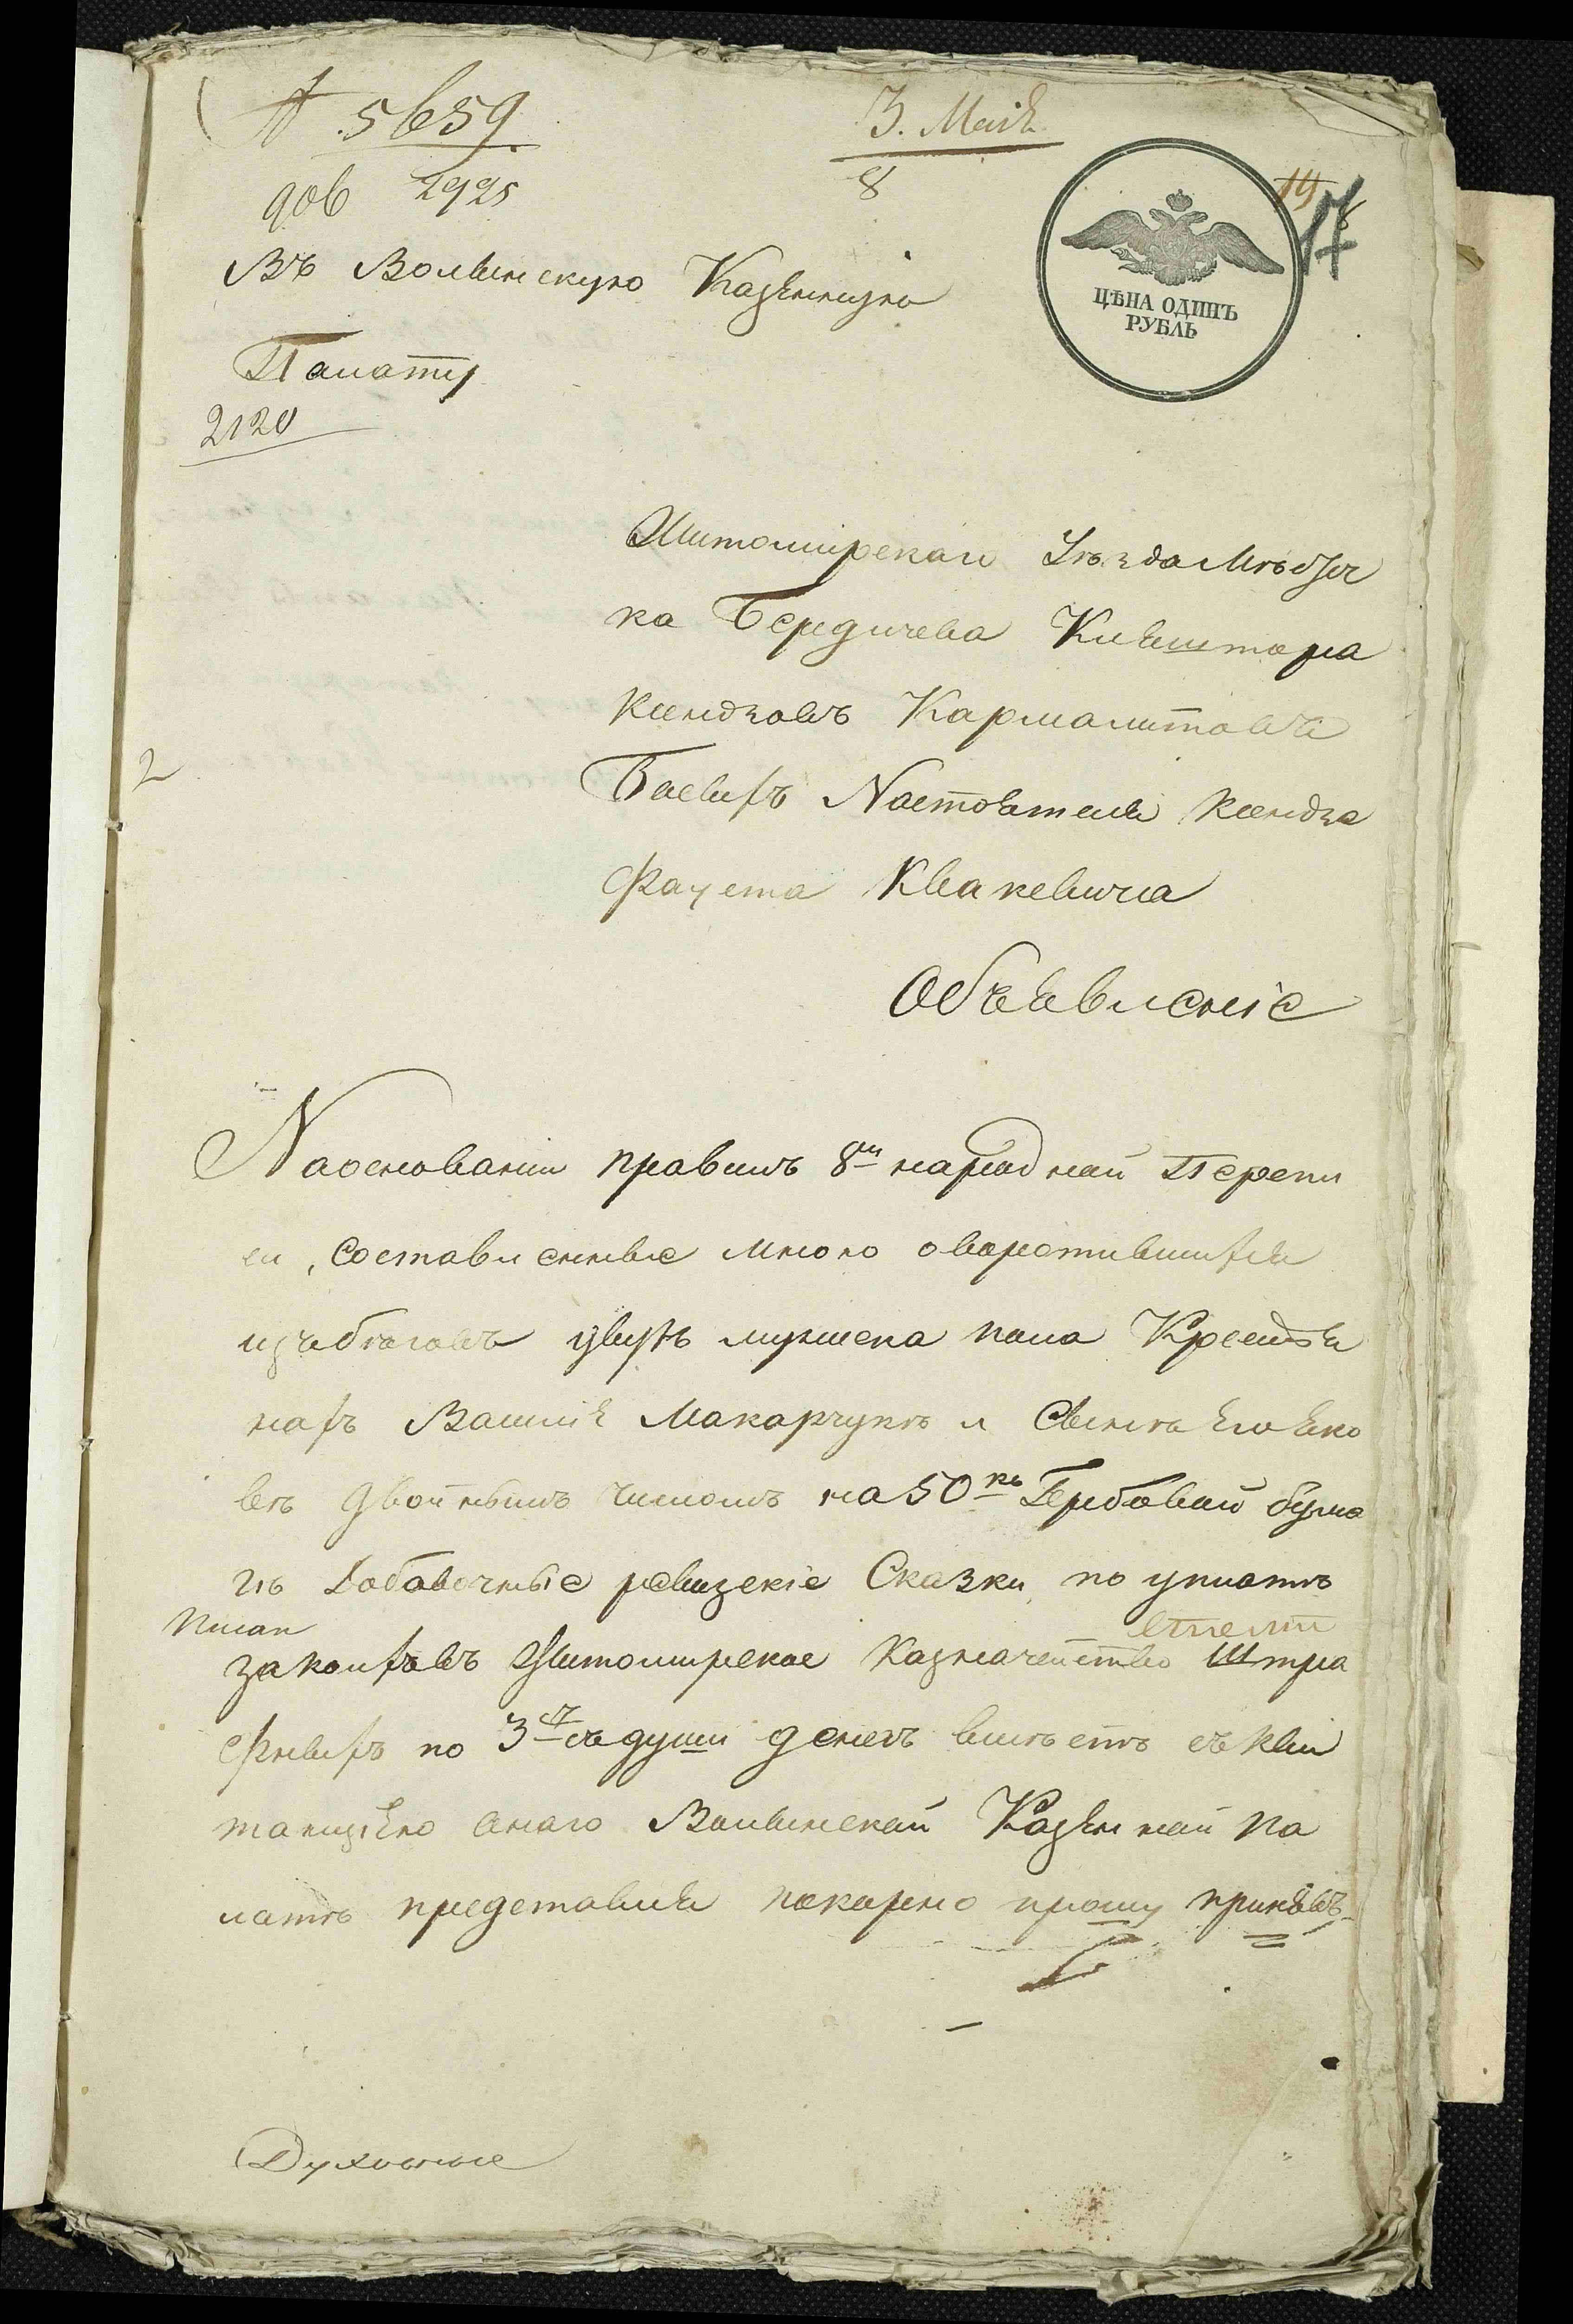 № 5659
3. Маія
8
14
17
906 2925
Въ Волынскую Казенную
ЦѢНА ОДИНЪ
РУБЛЬ
Палату
2120
Житомирскаго Уѣзда Мѣстеч
ка Бердичева Кляштора
Ксендзовъ Кармалитовъ
Босыхъ Настоятеля Ксендза
Фауста Квакевича
2
Объявленіе
Наоснованіи правилъ 8й народной Перепи
си, Составленные мною оворотившихся
изъбѣговъ двухъ мужеска пола Крестья
нахъ Василія Макарчукѣ и Сынѣ Его Яко
вѣ двойнымъ числомъ на 50 кѣ Гербовой бума
гѣ Добавочные ревизскіе Сказки, по уплатѣ
законховъ Житомирское Казначейство Штра
фныхъ по 3 съ души денегъ вмѣстѣ съ Кви
танціею онаго Волынской Казенной Па
латѣ представля покорно прошу принявъ
Духовные